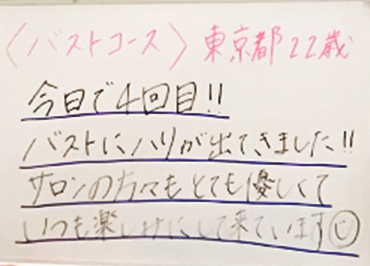 〈バストコース〉東京都22歳
今日で4回目!!
バストにハリが出てきました!!
サロンの方々もとても優しくて
いつも楽しみにして来ています☺